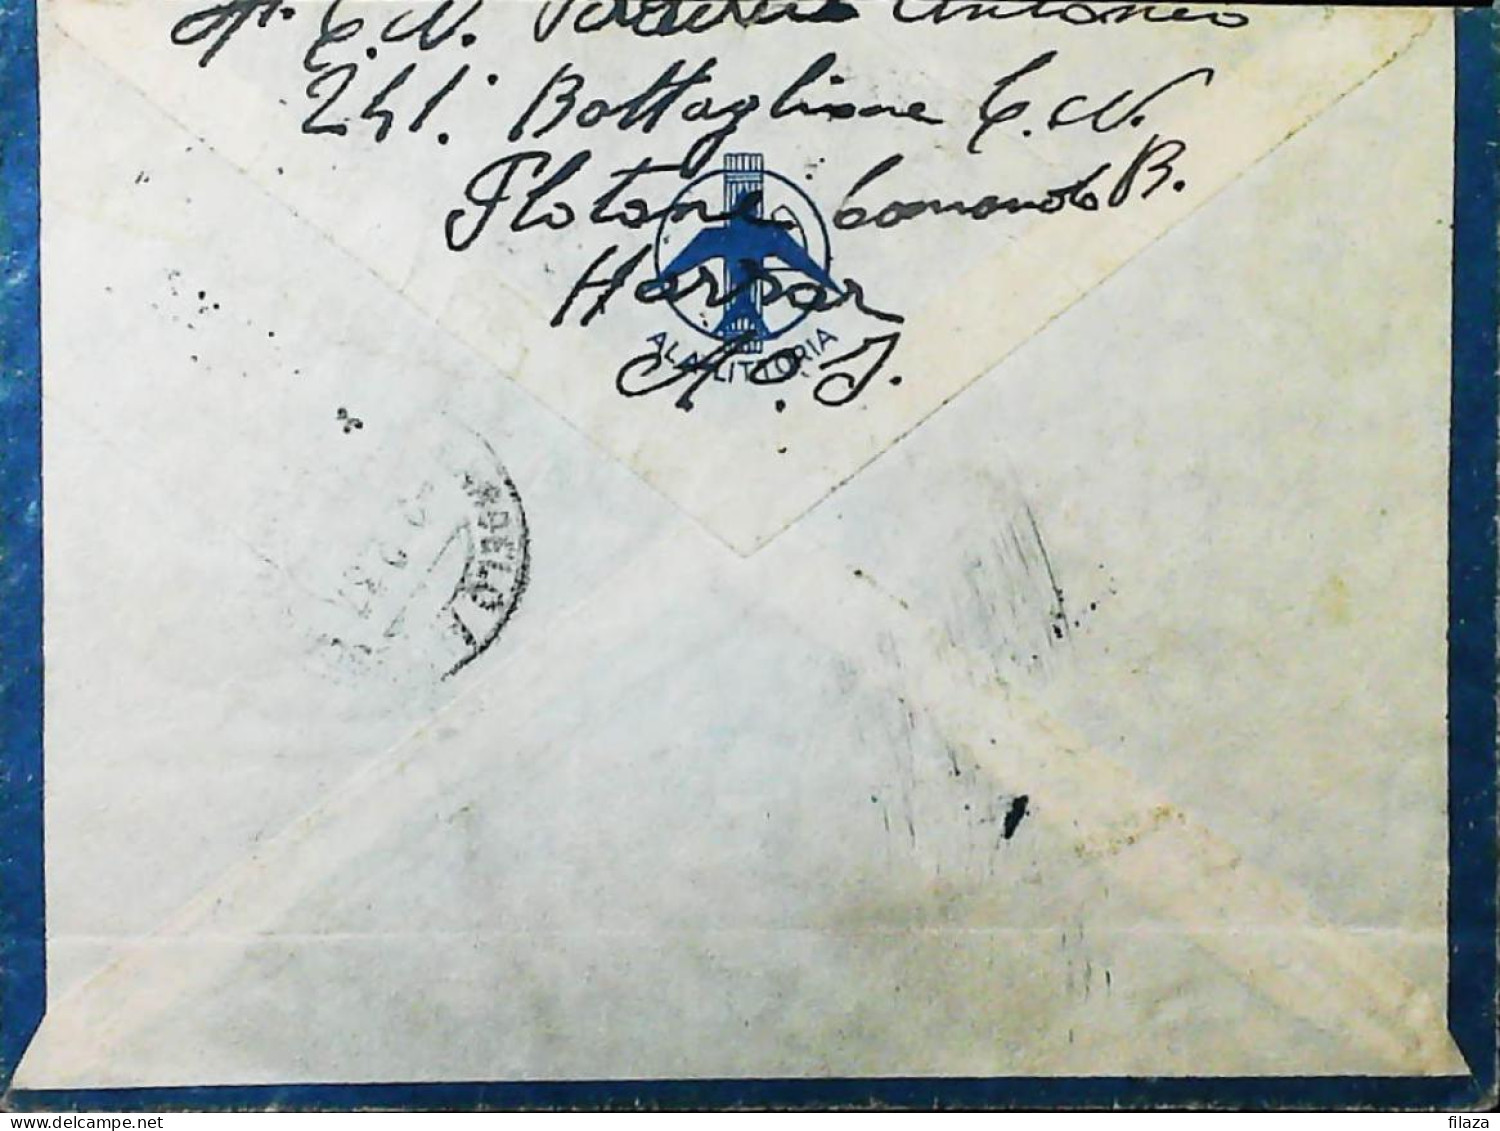 C.N. Antonio
241. Battaglione C.N.
Plotone Comando B.
Harrar
A.O.I.
ALA LITTORIA
filaza
delcampe.net